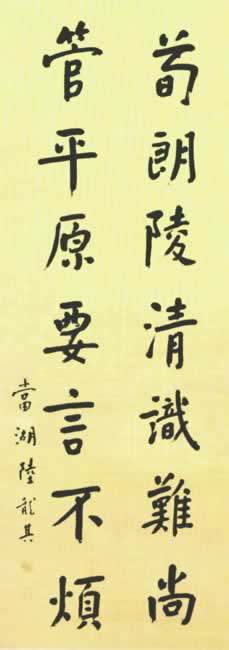 荀朗陵清識難尚
管平原要言不煩
當湖陸龍其